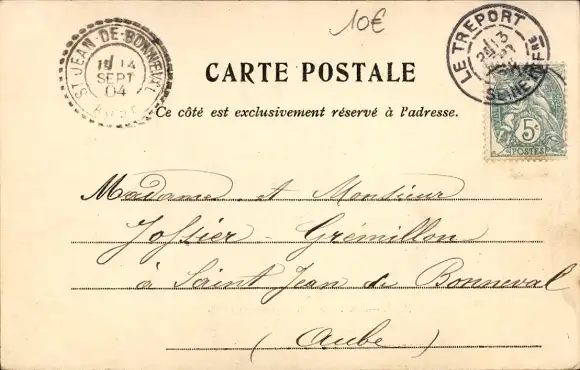 10€
ST JEAN-DE-BONNEVAL
14
SEPT
04
AUBE
LE TREPORT
13
SEINE INFRE
5c
POSTES
CARTE POSTALE
Ce côté est exclusivement réservé à l'adresse.
Madame et Monsieur
Joffrier - Grémillon
à Saint Jean de Bonneval
(Aube)